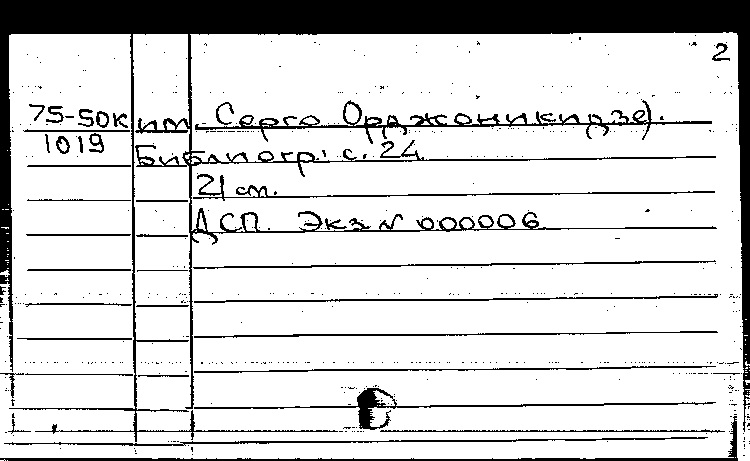 2
75-50к им. Серго Орджоникидзе).
1019 Библиогр: с. 24
21 см.
ДСП. Экз № 000006